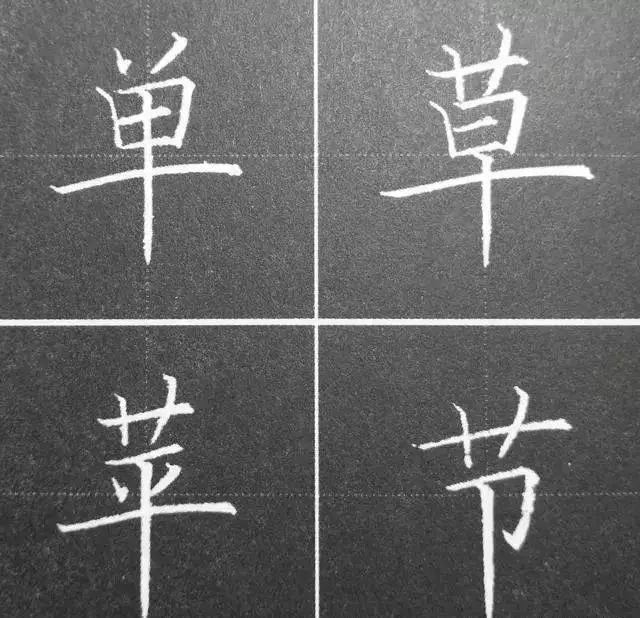 单草
苹节